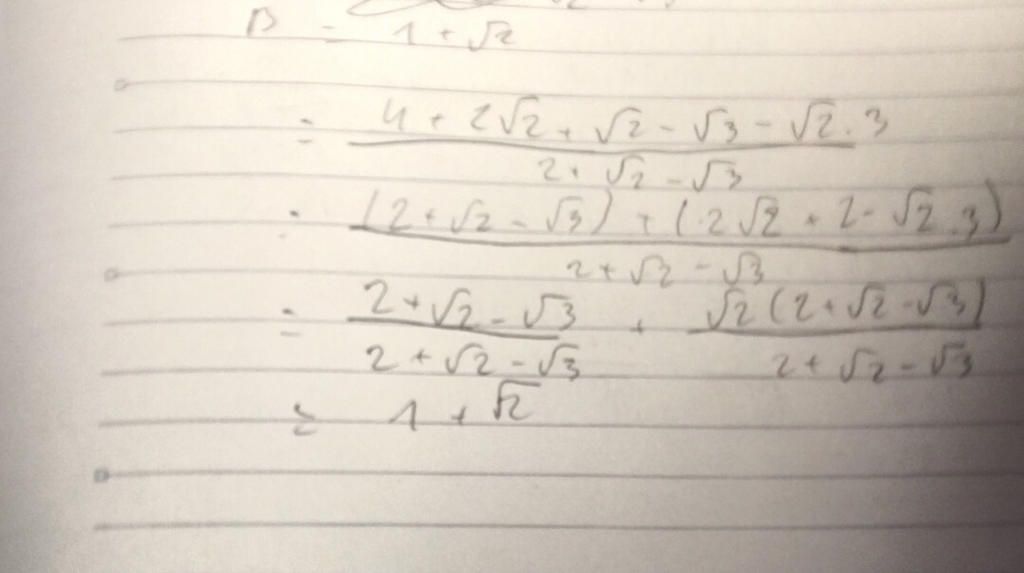 B = 1 + √2
= 4 + 2√2 + √2 - √3 - √2.3
2 + √2 - √3
= (2 + √2 - √3) + (2√2 + 2 - √2.3)
2 + √2 - √3
= 2 + √2 - √3 + √2 (2 + √2 - √3)
2 + √2 - √3 2 + √2 - √3
= 1 + √2